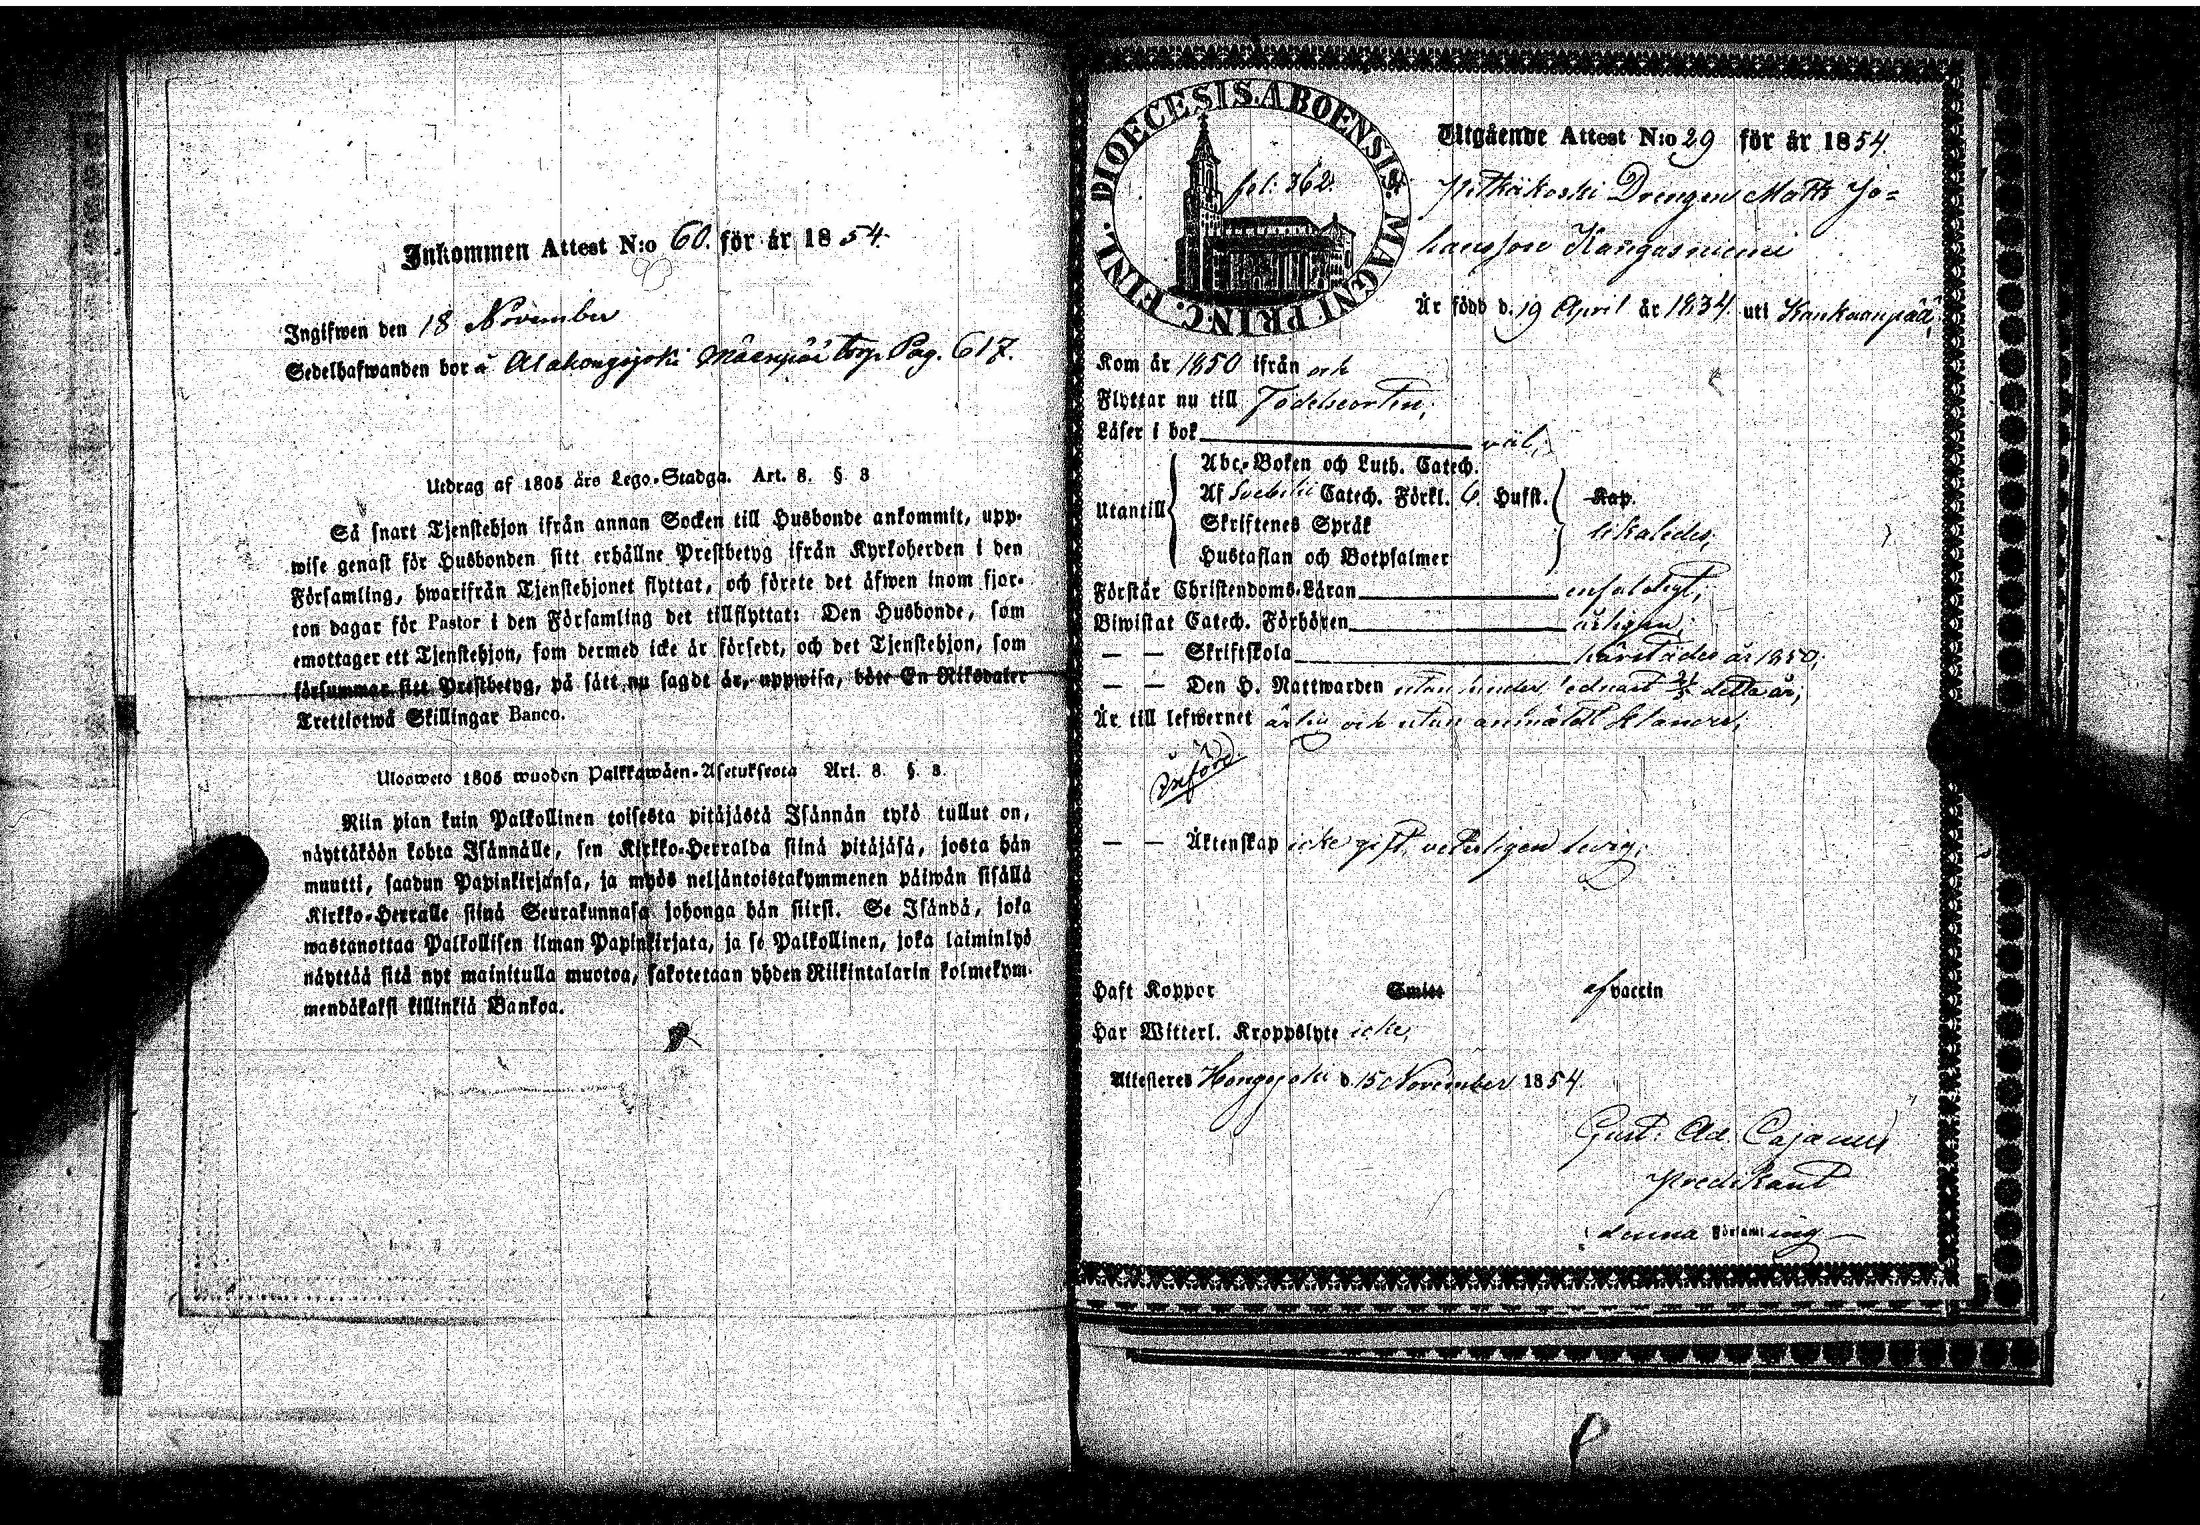 Inkommen Attest N:o 60. för år 1854.
Ingifwen den 18 November
Sedelhafwanden bor å Alahongojoki Mäenpää torp Pag. 617.
Utdrag af 1805 års Lego-Stadga. Art. 8. § 3
Så snart Tjenstehjon ifrån annan Socken till Husbonde ankommit, upp-
wise genast för Husbonden sitt erhållne Prestbetyg ifrån Kyrkoherden i den
Församling, hwarifrån Tjenstehjonet flyttat, och förete det äfwen inom fjor-
ton dagar för Pastor i den Församling det tillflyttat: Den Husbonde, som
emottager ett Tjenstehjon, som dermed icke är försedt, och det Tjenstehjon, som
försummar sitt Prestbetyg, på sätt nu sagdt är, uppwisa, böte En Riksdaler
Trettiotwå Skillingar Banco.
Ulosweto 1805 wuoden Palkkawäen-Asetuksesta Art. 8. §. 3.
Niin pian kuin Palkollinen toisesta pitäjästä Isännän tykö tullut on,
näyttäköön kohta Isännälle, sen Kirkko-Herralda siinä pitäjäsä, josta hän
muutti, saadun Papinkirjansa, ja myös neljäntoistakymmenen päiwän sisällä
Kirkko-Herralle siinä Seurakunnasa johonga hän siirst. Se Isändä, joka
wastanottaa Palkollisen ilman Papinkirjata, ja se Palkollinen, joka laiminlyö
näyttää sitä nyt mainitulla muotoa, sakotetaan yhden Riikintalarin kolmekym-
mendäkaksi killinkiä Bankoa.
DIOECESIS. ABOENSIS. MAGNI PRINC. FINL.
fol: 362.
Utgående Attest N:o 29 för år 1854.
Pitkäkoski Drengen Matts Jo-
hansson Kangasniemi
Är född d. 19 April år 1834. uti Kankaanpää,
Kom år 1850 ifrån och
Flyttar nu till Födelseorten,
Läser i bok väl,
Abc-Boken och Luth. Catech.
Utantill Af Svebilii Catech. Förkl. 6. Hufst. Kap.
Skriftenes Språk likaledes,
Hustaflan och Botpsalmer
Förstår Christendoms-Läran enfaldigt,
Biwistat Catech. Förhören årligen,
— — Skriftskola härstädes år 1850,
— — Den H. Nattwarden utan hinder, ednast detta år,
Är till lefwernet ärlig och utan anmäldt klander,
Införd
— — Äktenskap icke gift, veterligen ledig,
Haft Koppor Smitt af vaccin
Har Witterl. Kroppslyte icke,
Attesteres Hongojoki d. 15 November 1854.
Gust. Ad. Cajanus
Predikant
i denna Församling